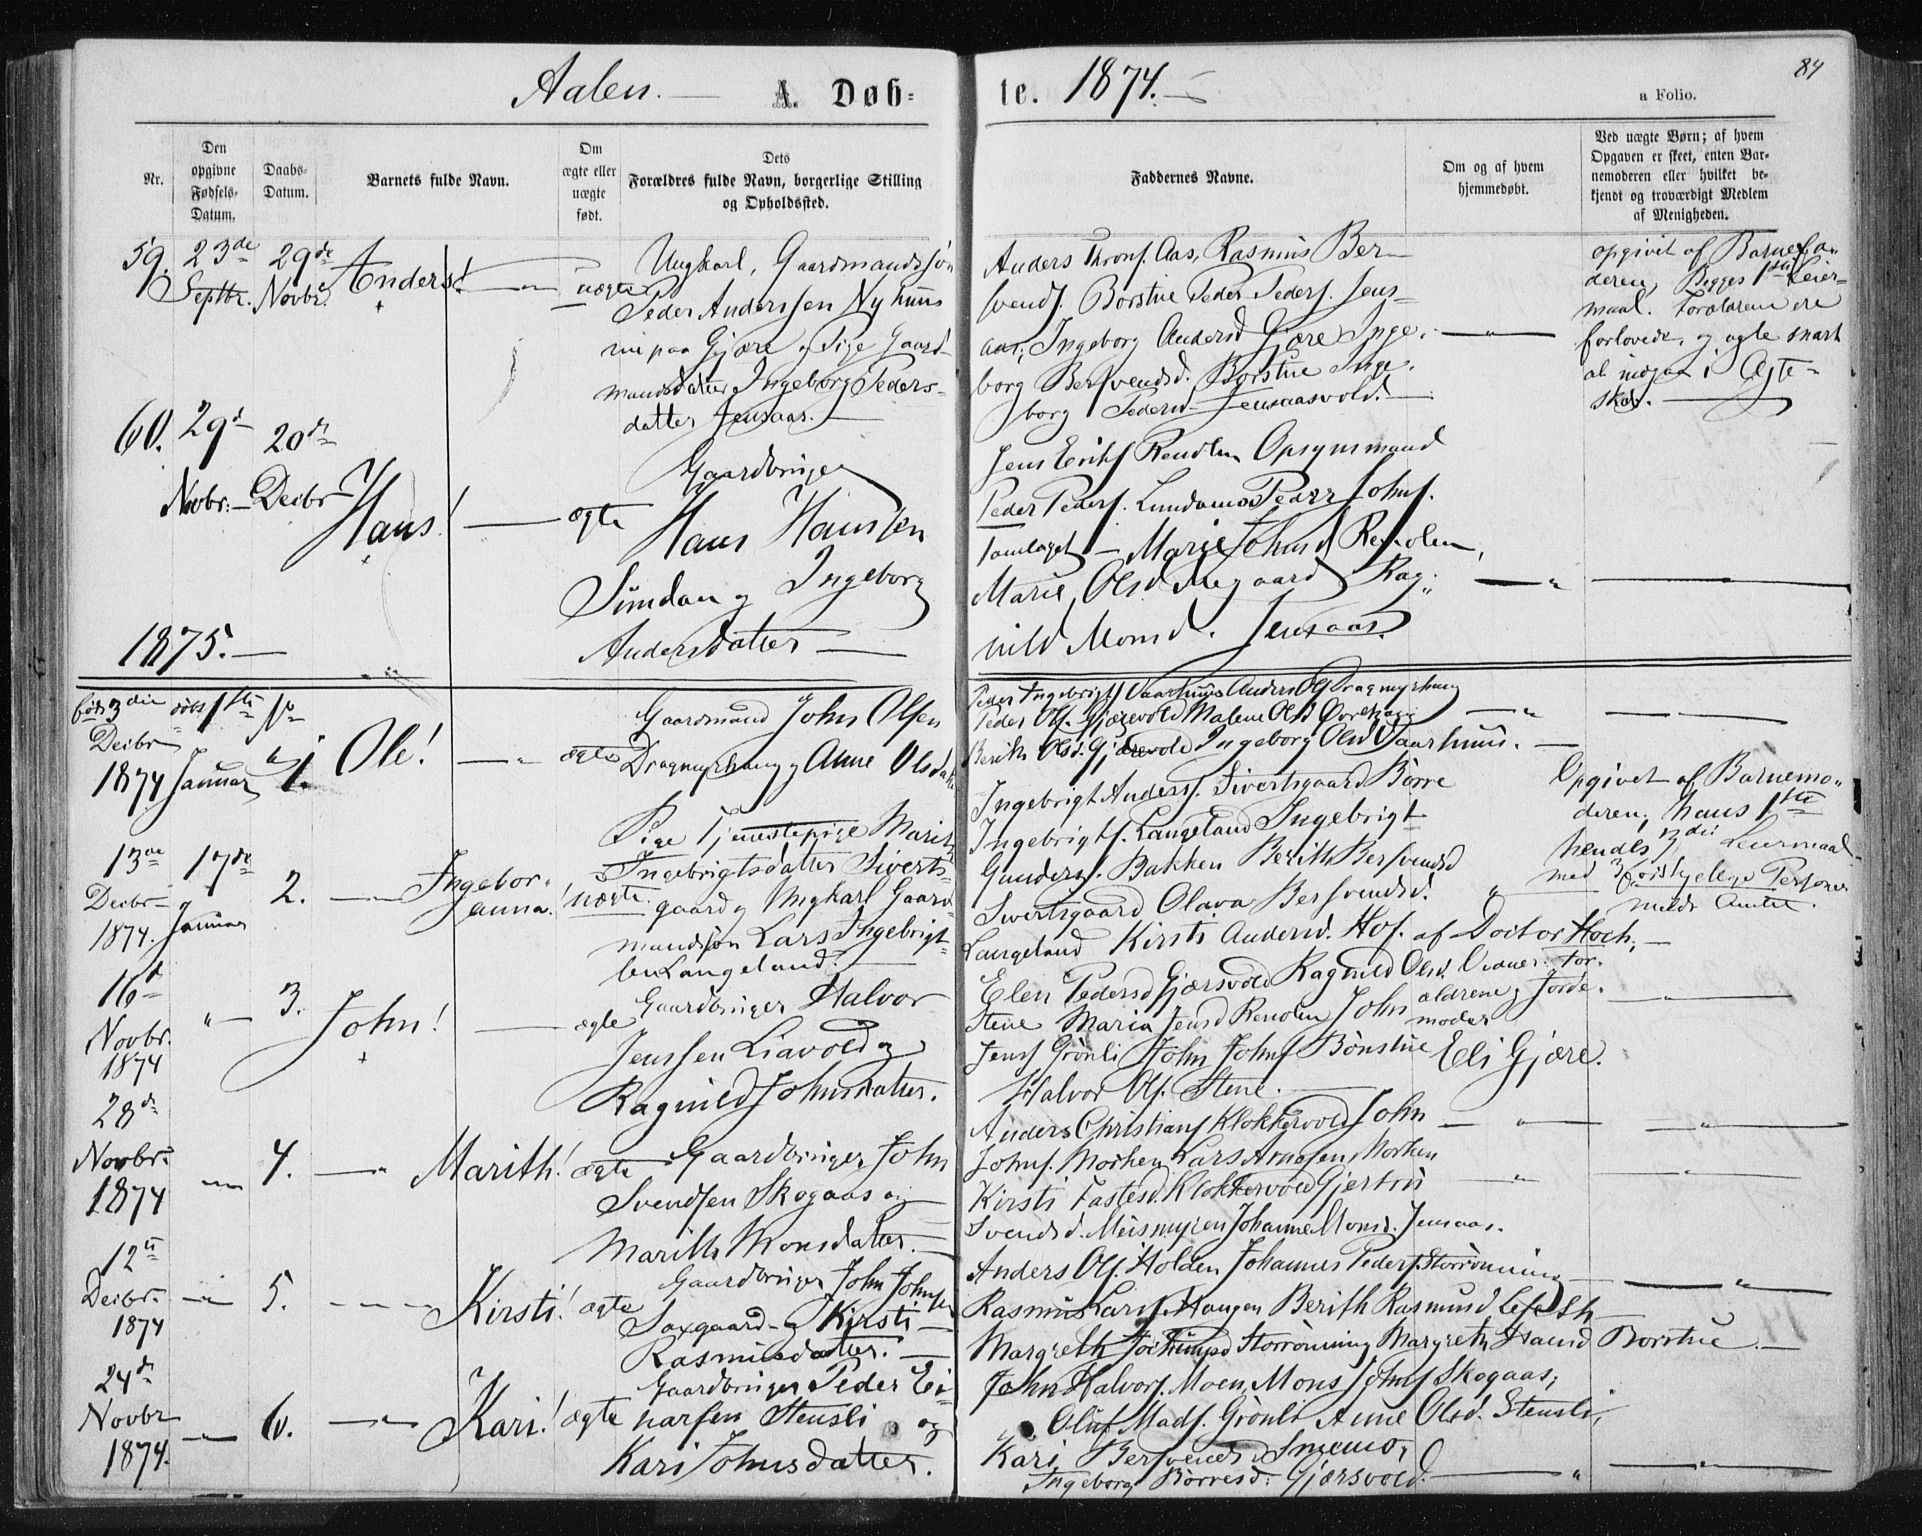 Aalen. — A. Døb=
te. 1874. —
84
a Folio.
Nr.
Den opgivne Fødsels-Datum.
Daabs-Datum.
Barnets fulde Navn.
Om ægte eller uægte født.
Dets Forældres fulde Navn, borgerlige Stilling og Opholdssted.
Faddernes Navne.
Om og af hvem hjemmedøbt.
Ved uægte Børn; af hvem Opgaven er skeet, enten Barnemoderen eller hvilket bekjendt og troværdigt Medlem af Menigheden.
59.
23de
Septbr.
29de
Novbr.
Anders!
uægte
Ungkarl, Gaardmandssøn
Peder Anderssen Nyhuus
nu paa Gjære og Pige Gaard-
mandsdatter Ingeborg Peders-
datter Jensaas. —
Anders Thronſ. Aas, Rasmus Ber-
svendſ. Borstue Peder Pedersſ. Jens-
aas; Ingeborg Andersd Gjære Inge-
borg Bersvendsd. Borstue Inge-
borg Pedersd Jensaasvold.
opgivet af Barnefa-
deren, Begges 1ste Leier-
maal. Forældrene ere
forlovede, og agte snart
at indgaa i Ægte-
skab. —
60.
29d
Novbr. —
20de
Decbr
Hans!
ægte
Gaardbruger
Hans Hanssen
og Ingeborg
Andersdatter —
Jens Eriksſ Renolen Opsynsmand
Peder Pedersſ. Lundamo Peder Johnsſ.
Marie Johnsd Renolen,
Marie Olsd Rag-
nild Monsd. Jensaas.
1875. —
født 3die
Decbr
1874
døbt 1ste
Januar
No
1.
Ole!
ægte
Gaardmand John Olsen
Dragmyrhaug og Anne Olsdatter
Peder Ingebrigtsſ Vaarhuus Anders Olsſ Dragmyrhaug
Peder Olsſ. Gjærevold Malene Olsd
Berith Olsd. Gjærevold Ingeborg Olsd Vaarhuus. —
13de
Decbr
1874.
17de
Januar
2.
Ingebor-
anna!
uægte.
Pige Tjenestepige Marith
Ingebrigtsdatter Siverts-
gaard og Ungkarl Gaard-
mandssøn Lars Ingebrigt-
sen Langeland.
Ingebrigt Andersſ. Sivertsgaard Børre
Ingebrigtsſ. Langeland Ingebrigt
Gundersſ. Bakken Berith Bersvendsd
Sivertsgaard Olava Bersvendsd.
Langeland Kirsti Andersd. Hof.
Opgivet af Barnemo-
deren; hans 1ste
hendes 3die Leiermaal
med 3 forskjellige Personer
16d
Novbr.
1874
3.
John!
ægte
Gaardbruger Halvor
Jenssen Liavold og
Ragnild Johnsdatter.
Elen Pedersd Gjærsvold Ragnild Olsd.
Stene Maria Jensd Renolen John
Jensſ Grönli John Johnsſ Bönstue
Halvor Olsſ. Stene. —
af Doctor Hoch, —
For-
ældrene og Jorde-
moder
Eli Gjære.
28d
Novbr.
1874
4.
Marith!
ægte
Gaardbruger John
Svendsen Skogaas og
Marith Monsdatter. —
Anders Christiansſ Klokkervold John
Johnsſ. Morken Lars Arnesen Morken
Kirsti Fastesd. Klokkervold Gjertru
Svendsd. Meismyren Johanne Monsd. Jensaas.
12te
Decbr.
1874
5.
Kirsti!
ægte
Gaardbruger John Johnsen
Saxgaard og Kirsti
Rasmusdatter. —
Anders Olsſ. Holden Johannes Pedersſ. Storrönning
Rasmus Larsſ. Haugen Berith Rasmusd
Margreth Storrönning Margreth Hansd Borstue. —
24d
Novbr
1874.
6.
Kari!
ægte
Gaardbruger Peder Ei-
narsen Stensli og
Kari Johnsdatter.
John Halvorsſ. Moen, Mons Johnsſ Skogaas;
Oluf Madsſ. Grönli Anne Olsd. Stensli,
Kari Bersvendsd
Ingeborg Börresd: Gjærsvold.